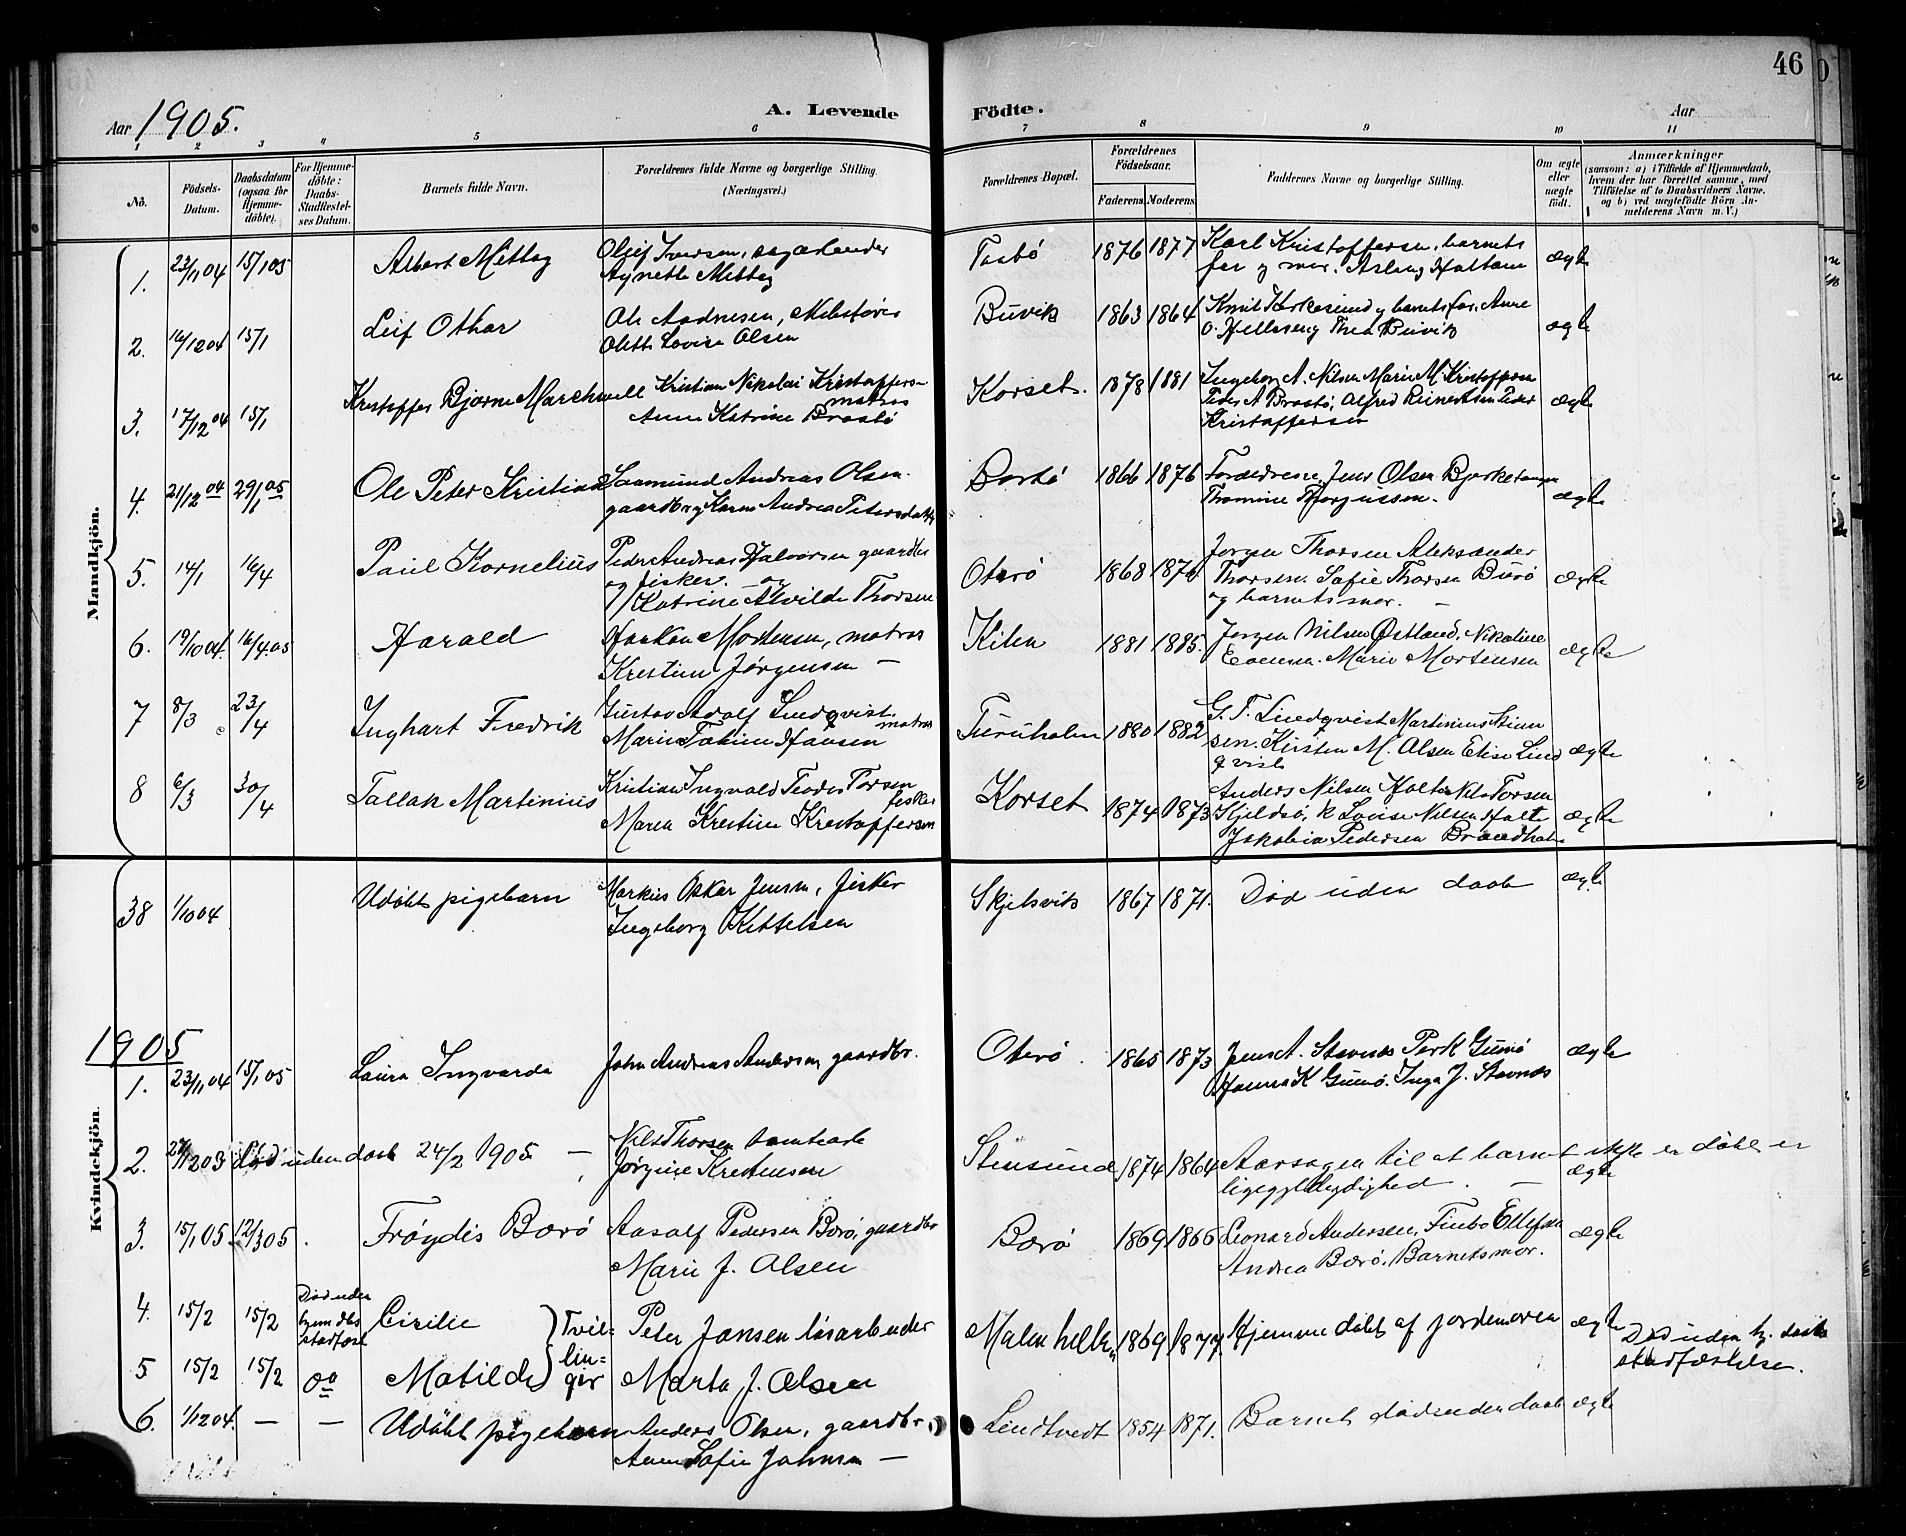 46
Aar 1905. A. Levende Födte. Aar
1 2 3 4 5 6 7 8 9 10 11
No. Födsels-Datum. Daabsdatum (ogsaa for Hjemme-döbte). For Hjemme-döbte: Daabs-Stadfæstel-ses Datum. Barnets fulde Navn. Forældrenes fulde Navne og borgerlige Stilling. (Næringsvei.) Forældrenes Bopæl. Forældrenes Födselsaar. Faderens Moderens Faddernes Navne og borgerlige Stilling. Om ægte eller uægte födt. Anmærkninger (saasom: a) i Tilfælde af Hjemmedaab, hvem der har forrettet samme, med Tilföielse af to Daabsvidners Navne, og b) ved uægtefödte Börn An-melderens Navn m. V.)
Mandkjön.
1. 23/11 04 15/1 05 Albert Mittag Oluf Iversen, Agnethe Mittag 1876 1877 Karl Kristoffersen, barnets far og mor. ægte
2. 16/12 04 15/1 Leif Othar Ole Andresen, Olette Lovise Olsen Buvik 1863 1864 ægte
3. 17/12 04 15/1 Kristoffer Bjarne Kristian Nikolai Kristoffersen matros Anne Katrine Brostø Korset. 1878 1881 Ingeborg A. Nilsen Marie M. Kristoffersen Peder A Brostø, Alfred Reinertsen Peder Kristoffersen ægte
4. 21/12 04 29/1 05 Ole Peter Kristian Saamund Andreas Olsen gaardbr og Karen Andrea Petersdatter 1866 1876 Forældrene, Jens Olsen Thomine Thorgussen. ægte
5. 14/1 16/4 Paul Kornelius Peder Andreas Halvorsen gaardbr og fisker. og Katrine Alvilde Thorsen Oterø 1868 Jørgen Thorsen Aleksander Thorsen. Sofie Thorsen Burø og barnets mor. ægte
6. 19/10 04. 16/4 05 Harald Haakon Mortensen, matros Kristine Jørgensen — Kilen 1881 1885. Jørgen Nilsen Østland, Nikoline Evensen. Marie Mortensen ægte
7 8/3 23/4 Inghart Fredrik Gustav Adolf Lindqvist. matros Marie Tobine Hansen Furuholm 1880 1882 G. T. Lindqvist Martinius Stiansen. Kirsten M. Olsen Elise Lindqvist ægte
8 6/3 30/4 Tallak Martinius Kristian Ingvald Teodor Torsen fisker Maren Kristine Kristoffersen Korset 1874 1873 Anders Nilsen Holte Nils Torsen Kjeldsø, K Lovise Nilsen Holte Jakobine Pedersen Brandholm ægte
38 1/10 04 Udöbt pigebarn Markus Oskar Jensen, fisker Ingeborg Kittelsen Skjelsvik 1867 1871. Död uden daab ægte
1905
Kvindekjön.
1. 23/11 04 15/1 05 Laura Ingvarda John Andreas Andersen gaardbr. Oterø 1865 1873 Jens A. Stavnæs Per K Gumø Hanna K Gumø. Inga J. Stavnæs ægte
2. 27/12 03 død uden daab 24/2 1905 — Nils Thorsen tomtearb Jørgine Kristensen Stensund 1874 1864 Aarsagen til at barnet ikke er döbt er ligegyldighed. — ægte
3. 15/1 05 12/3 05 Frøydis Barø Aasolf Pedersen Barø, gaardbr Marie J. Olsen Barø 1869 1866 Leonard Andersen, Finbo Ellefsen Andrea Barø. Barnets mor. ægte
4. 15/2 15/2 Död uden hjemdbs stadfæst Cicilie } Tvil= Peter Jansen lösarbeider Malmhella 1869 1877 Hjemme döbt af jordemoren ægte Död uden hj. daabs stadfæstelse.
5 15/2 15/2 do Matilde } lin= ger Marta J. Olsen
6. 1/12 04. — — Udöbt pigebarn Anders Olsen, gaardbr Anne Sofie Johnsen — Lindtvedt 1854 1871. Barnet död uden daab ægte